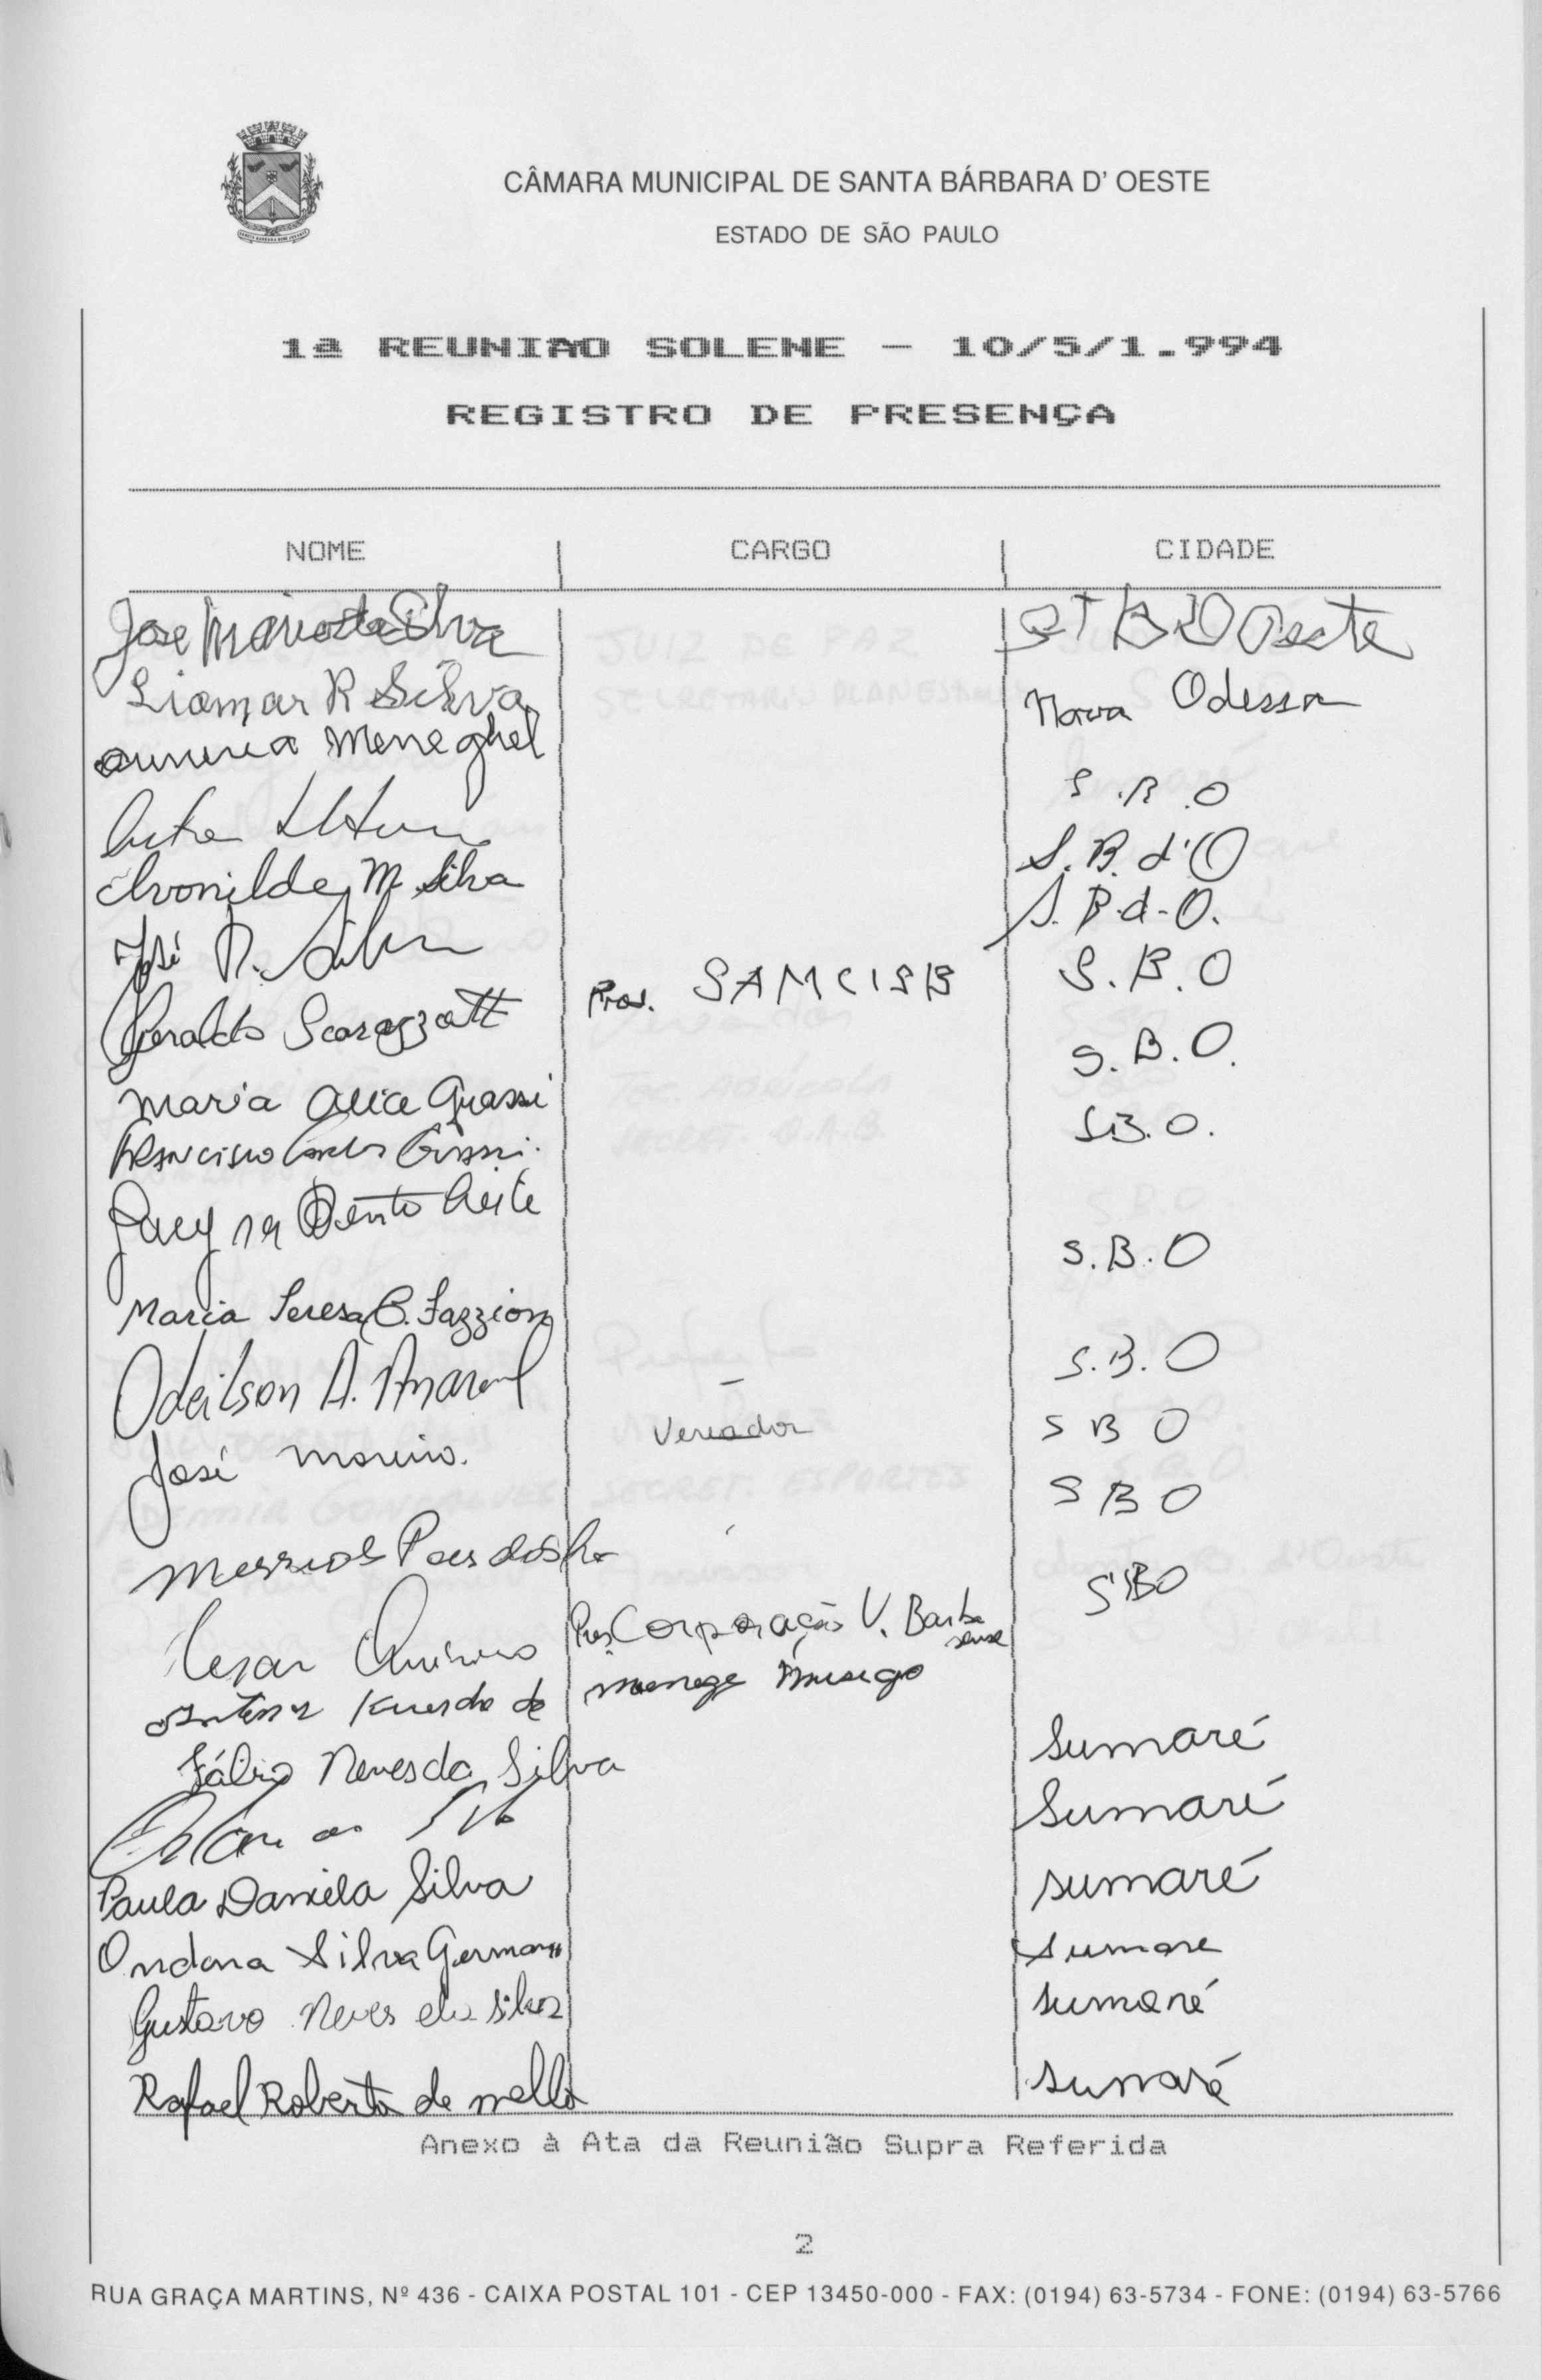 CÂMARA MUNICIPAL DE SANTA BÁRBARA D' OESTE
ESTADO DE SÃO PAULO
1ª REUNIÃO SOLENE - 10/5/1.994
REGISTRO DE PRESENÇA
NOME CARGO CIDADE
Jose Mario da Silva ST B D Oeste
Liomar R Silva Nova Odessa
Meneghel
S.B.O
S.B. d'O
Ivonilde M. Silva S.B.d-O.
José Silva S.B.O
Geraldo Scarazzatti SAMCISB S.B.O.
Maria Alice Grassi S.B.O.
Francisco Carlos Grassi.
Bento Leite S.B.O
Maria Teresa B. Fazzion S.B.O
Odeilson A. Amaral - S B O
José Moreira. Vereador S B O
Messias Paes da Silva SBO
Cesar Pres. Corporação V. Barba
rense
de
Fábio Neves da Silva Sumaré
Sumaré
Paula Daniela Silva Sumaré
Ondona Silva Germano Sumare
Gustavo Neves da Silva Sumaré
Rafael Roberto de mello Sumaré
Anexo à Ata da Reunião Supra Referida
2
RUA GRAÇA MARTINS, Nº 436 - CAIXA POSTAL 101 - CEP 13450-000 - FAX: (0194) 63-5734 - FONE: (0194) 63-5766